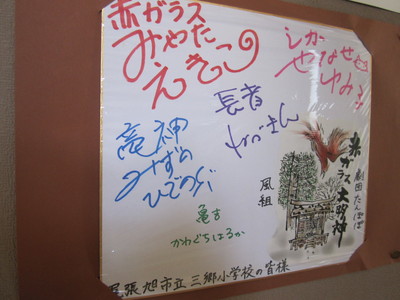 赤ガラス
みやた
えきこ
シカー
やなせ
ゆみ
長者
竜神
みずの
ひでのり
亀吉
かわぐちはるか
風組
劇団たんぽぽ
赤ガラス大明神
尾張旭市立三郷小学校の皆様